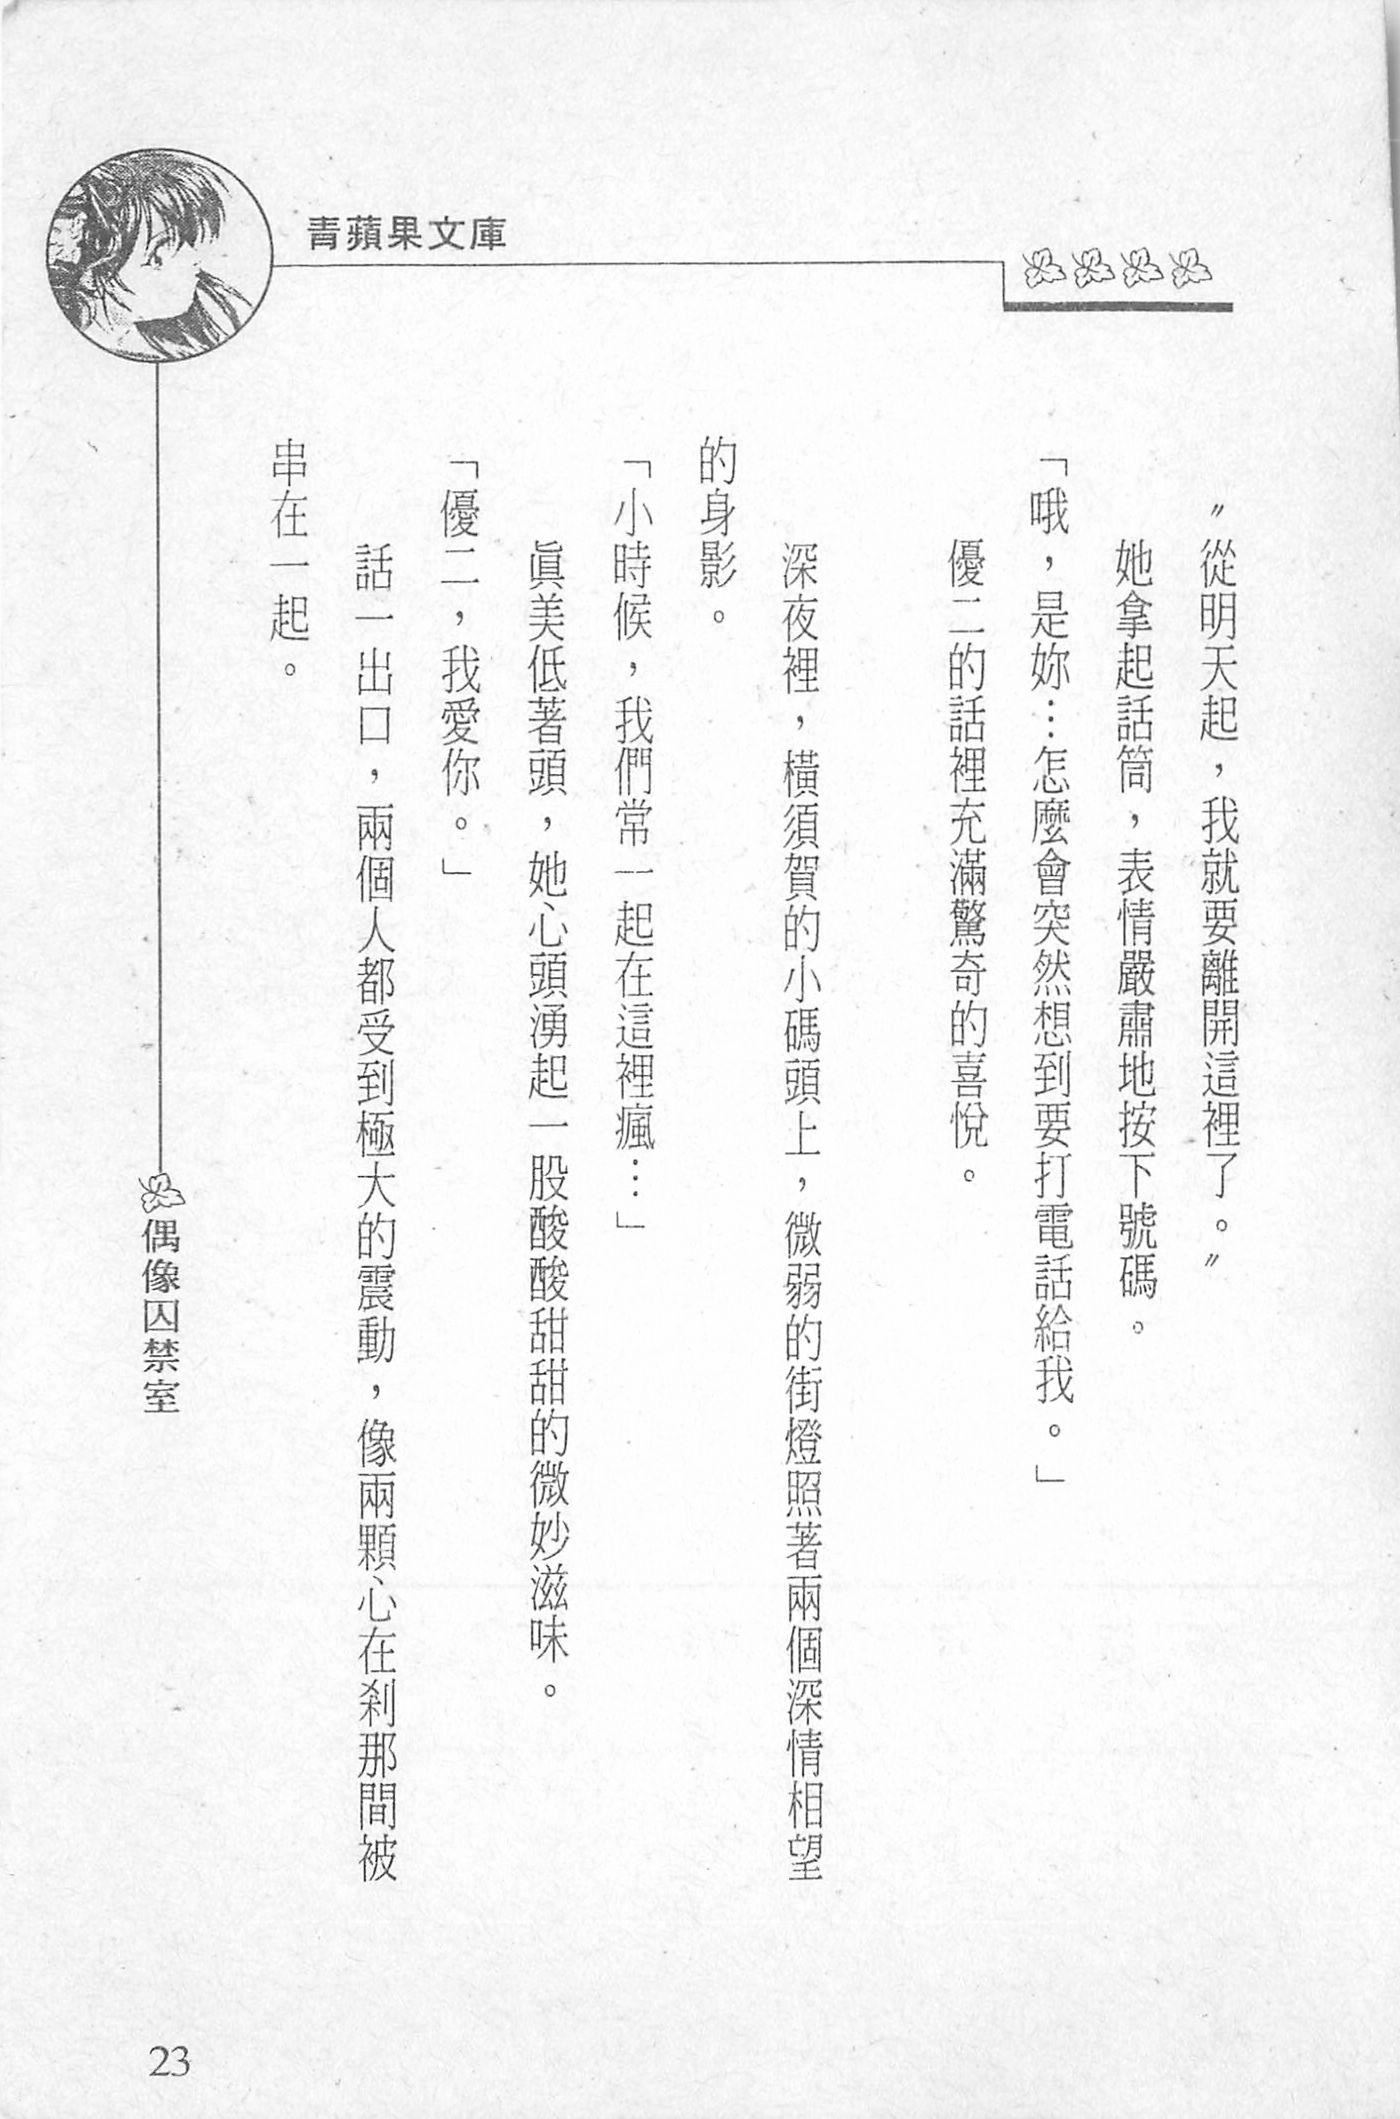 青蘋果文庫
〞從明天起，我就要離開這裡了。〞
她拿起話筒，表情嚴肅地按下號碼。
「哦，是妳…怎麼會突然想到要打電話給我。」
優二的話裡充滿驚奇的喜悅。
深夜裡，橫須賀的小碼頭上，微弱的街燈照著兩個深情相望
的身影。
「小時候，我們常一起在這裡瘋…」
眞美低著頭，她心頭湧起一股酸酸甜甜的微妙滋味。
「優二，我愛你。」
話一出口，兩個人都受到極大的震動，像兩顆心在剎那間被
串在一起。
偶像囚禁室
23